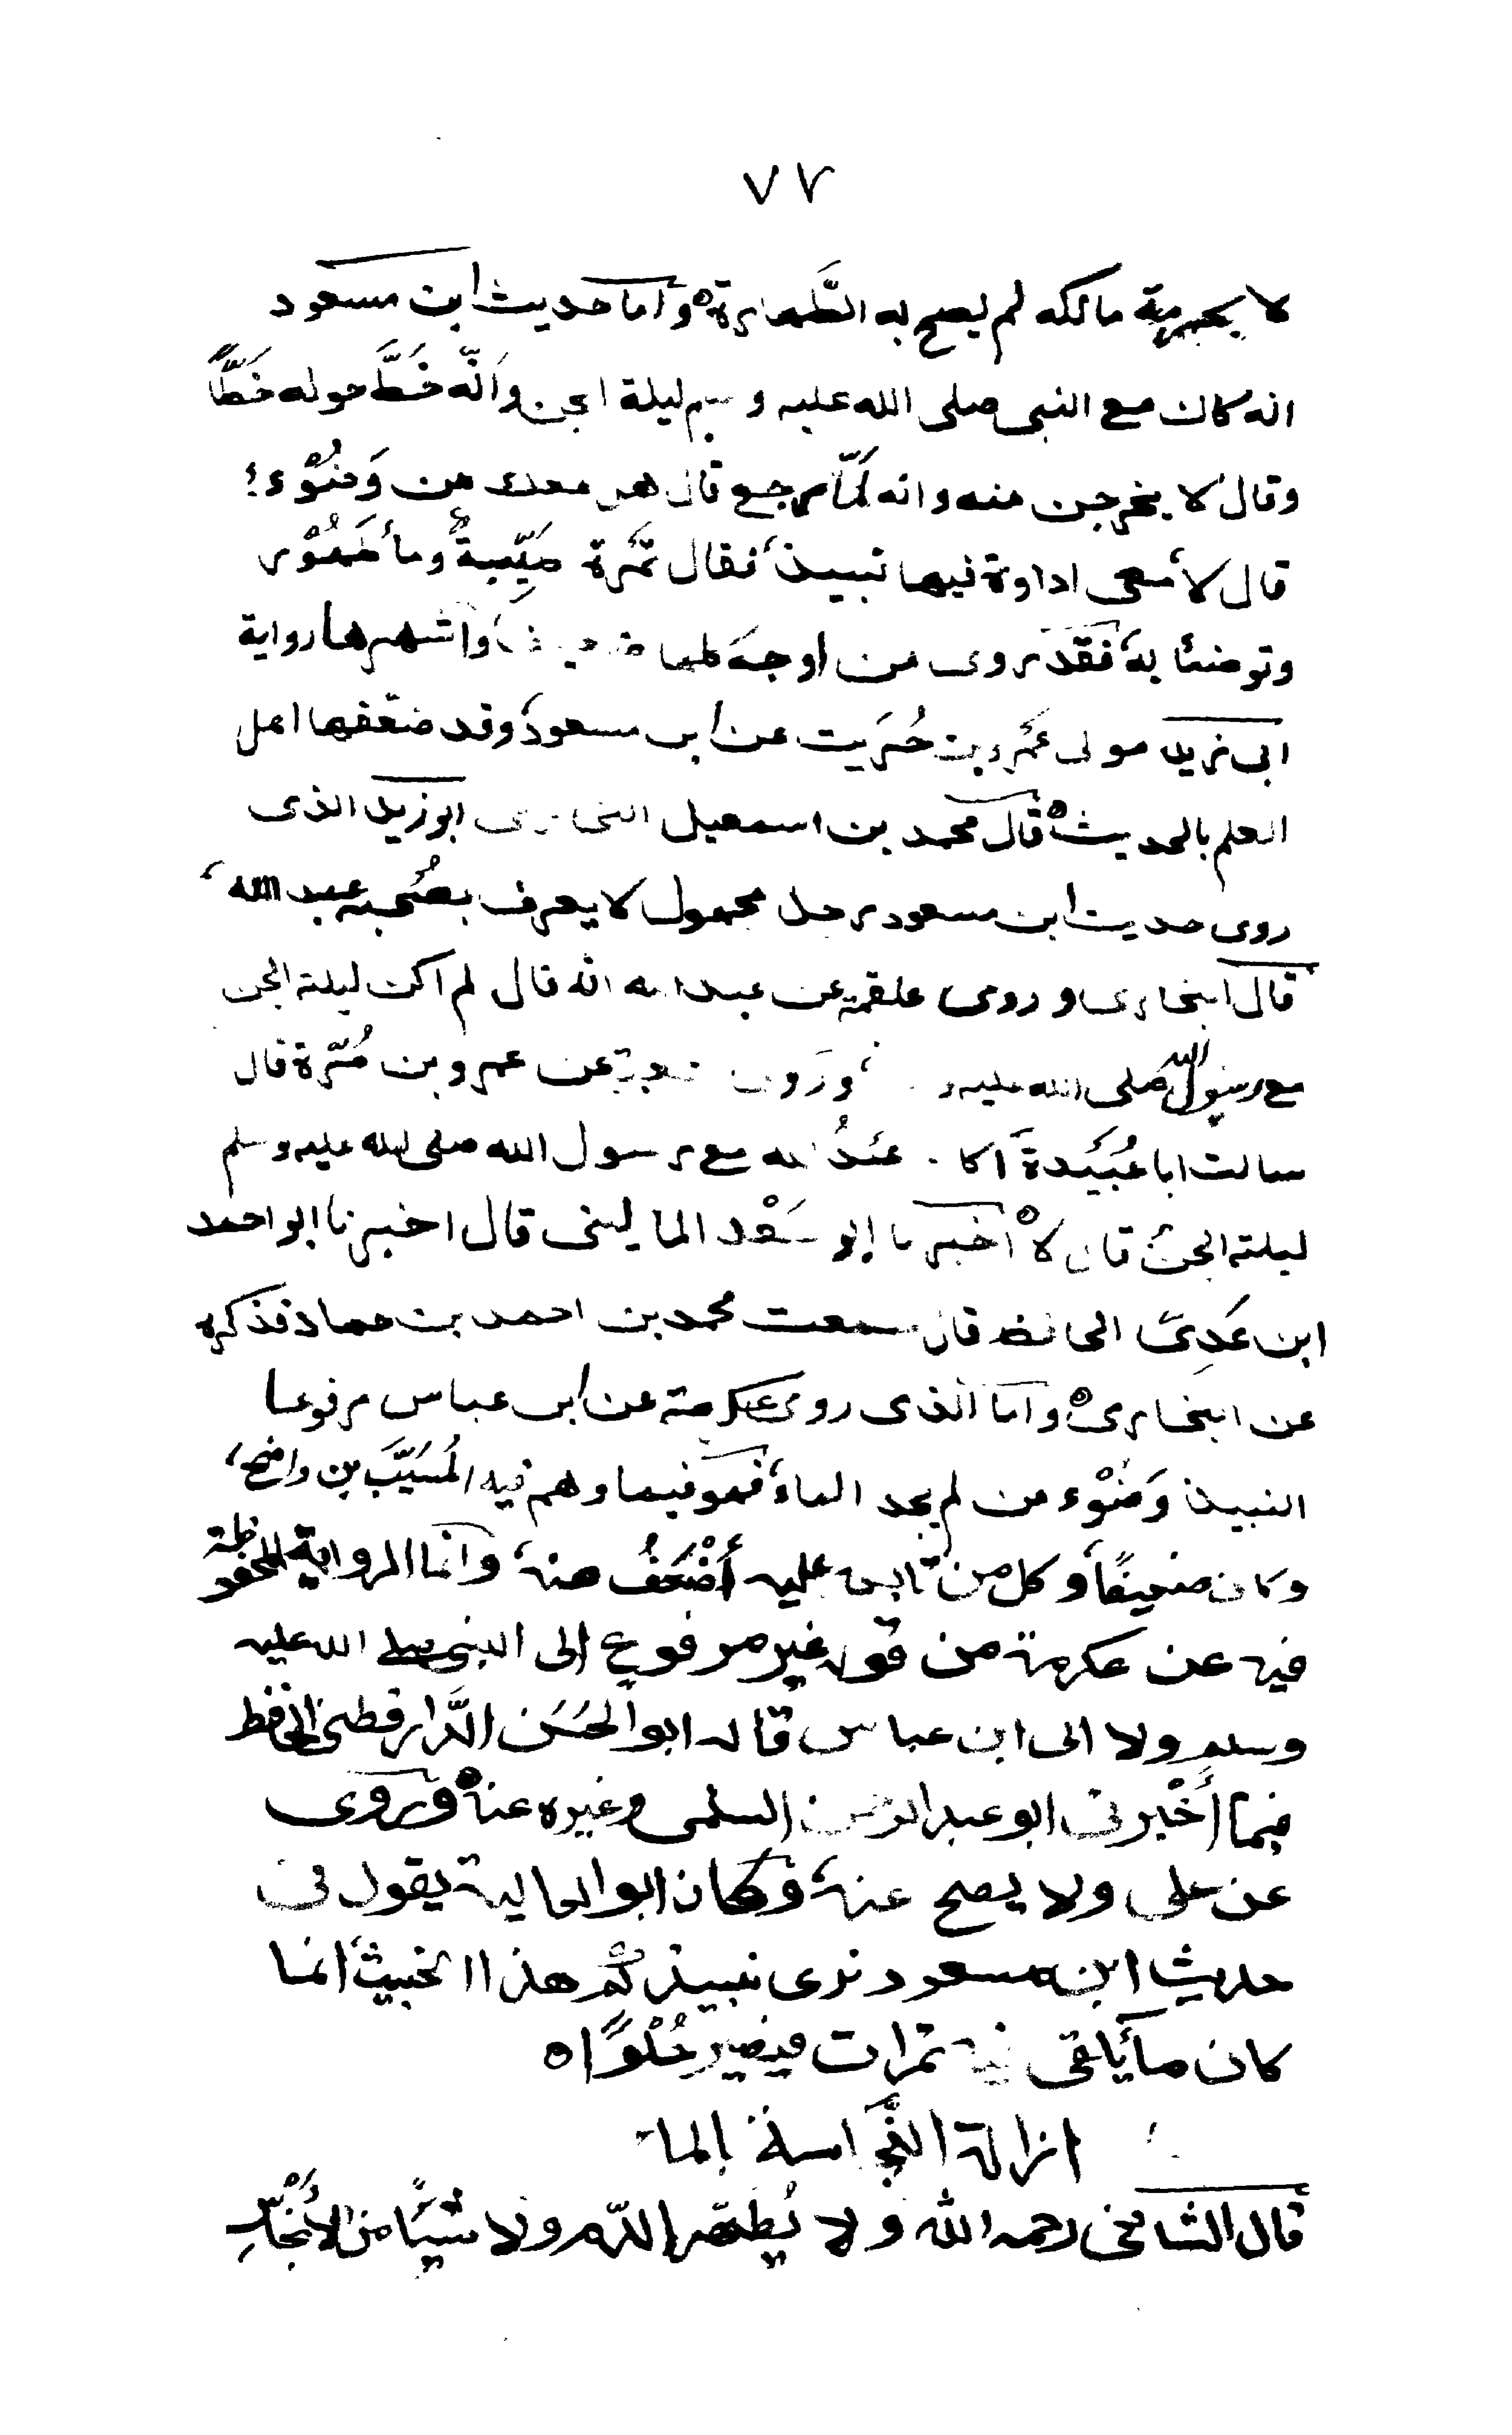 ٧٧
لا بحرمة مالكه لم يصح به الطَّهارة ه وأما حديث ابن مسعود
انه كان مع النبي صلى الله عليه وسلم ليلة الجن وأنّه خَطَّ حوله خَطًّا
وقال لا يخرجن منه وانه لمّا رجع قال هل معك من وَضُوْء؛
قال لا معى اداوة فيها نبيذ، فقال تمَرة طَيِّبةٌ وماء طَهُوْر
وتوضئا به، فقد روى من اوجه كلها ضعيف، وأشهرها رواية
ابى زيد مولى عَمْرو بن حُرَيت عن ابن مسعود، وقد ضعّفها اهل
العلم بالحديث ه قال محمد بن اسمعيل البخارى ابو زيد الذى
روى حديث ابن مسعود رجل مجهول لا يعرف بصُحْبة عبد الله،
قال البخارى وروى علقمة عن عبد الله انه قال لم اكن ليلة الجن
مع رسول الله صلى الله عليه و، ورَوى شعبة عن عمرو بن مُرّة قال
سالت ابا عُبَيْدة أكان عَبْدُ الله مع رسول الله صلى الله عليه وسلم
ليلة الجن قال لا ه أخبرنا ابو سَعْد المالينى قال اخبرنا ابو احمد
ابن عَدِىّ الحافظ قال سمعت محمد بن احمد بن حماد فذكره
عن البخارى ه واما الذى روى عكرمة عن ابن عباس مرفوعا
النبيذ وَضُوْء من لم يجد الماء، فهو فيما وهم فيه المُسَيَّب بن واضح،
وكان ضعيفًا، وكل من تابعه عليه أضْعَفُ منه، وانما الرواية المحفوظة
فيه عن عكرمة من قوله غير مرفوعٍ إلى النبى صلى الله عليه
وسلم ولا الى ابن عباس قاله ابو الحَسَن الدَّارقطنى الحافظ
فيما أخْبرنى ابو عبد الرحمن السلمى وغيره عنه ه وروى
عن على ولا يصح عنه، وكان ابو العالية يقول فى
حديث ابن مسعود نرى نبيذكُمْ هذا الخبيث، انما
كان ماء يلقى فيه تمرات فيصير حُلْوًا ه
ازالة النَّجاسة بالماء
قال الشافعى رحمه الله ولا يُطهّر الدّم ولا شيئًا من الأَنْجَاسِ